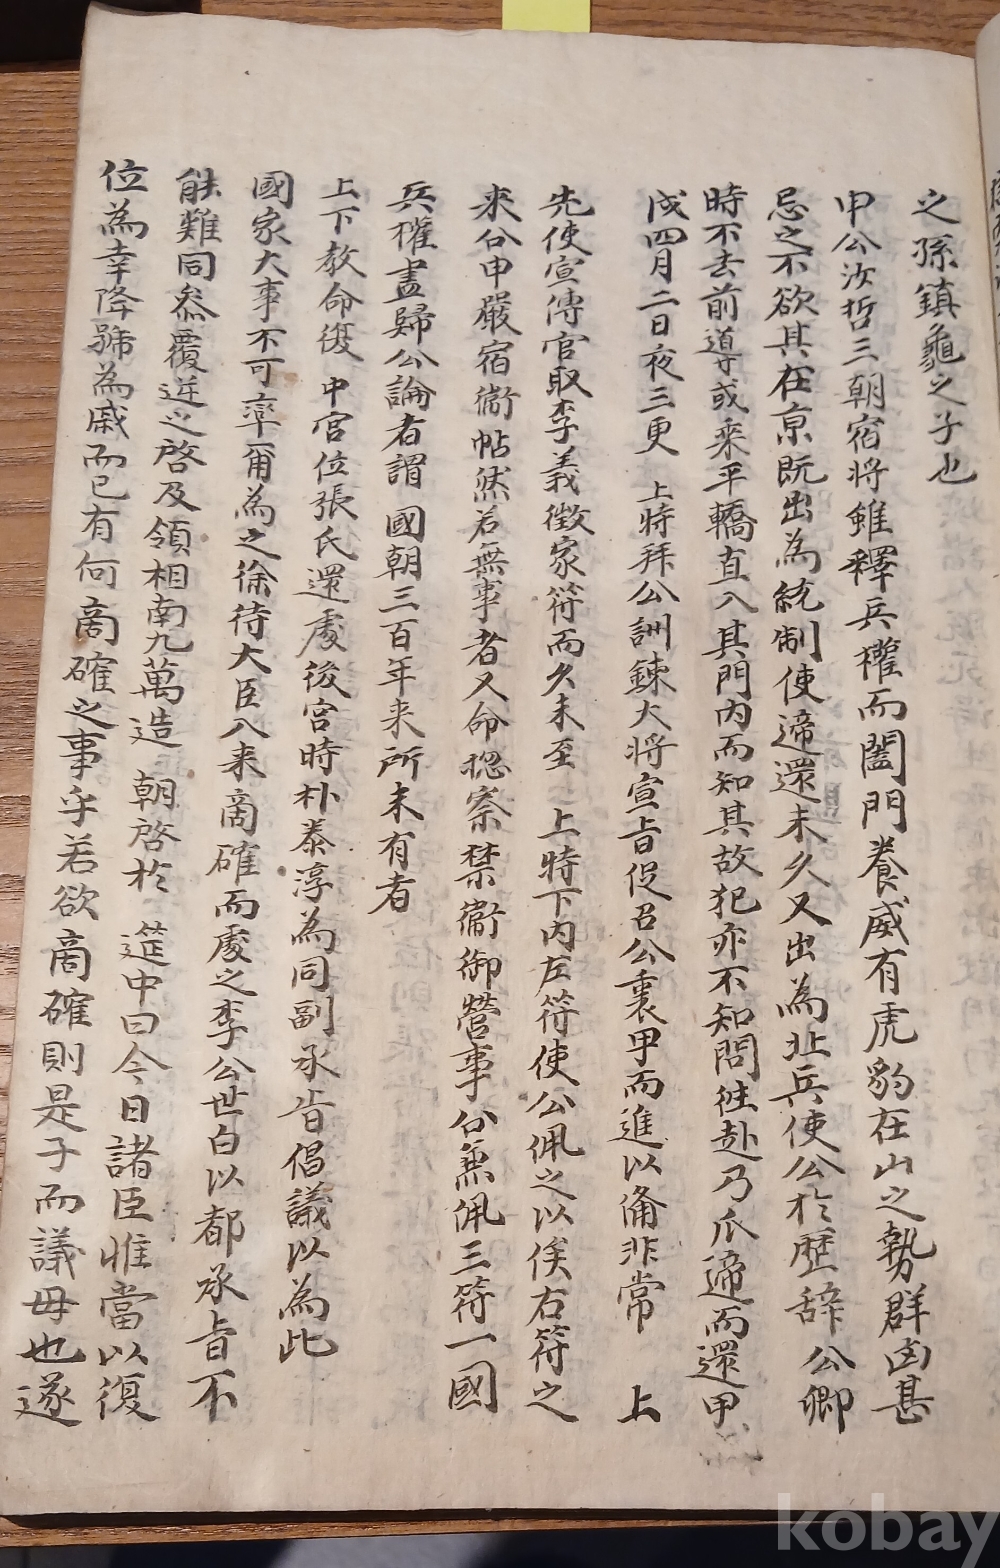 之孫鎮龜之子也
申公汝哲三朝宿將雖釋兵權而闔門養威有虎豹在山之勢群凶甚
忌之不欲其在京既出為統制使遆還未久又出為北兵使公於歷辞公卿
時不去前導或乘平轎直入其門內而知其故犯亦不知問徃赴乃瓜遆而還甲
戌四月二日夜三更 上特拜公訓鍊大將宣旨促召公裹甲而進以俻非常 上
先使宣傳官取李義徵家符而久未至 上特下內左符使公佩之以俟右符之
來公申嚴宿衛帖然若無事者又命摠察禁衛御營事公兼佩三符一國
兵權盡歸公論者謂國朝三百年来所未有者
上下教命復 中宮位張氏還處後宮時朴泰淳為同副承旨倡議以為此
國家大事不可率爾為之徐待大臣入来啇確而處之李公世白以都承旨不
能難同叅覆逆之啓及領相南九萬造 朝啓於 筵中曰今日諸臣惟當以復
位為幸降號為戚而已有何啇確之事乎若欲啇確則是子而議母也遂
kobay